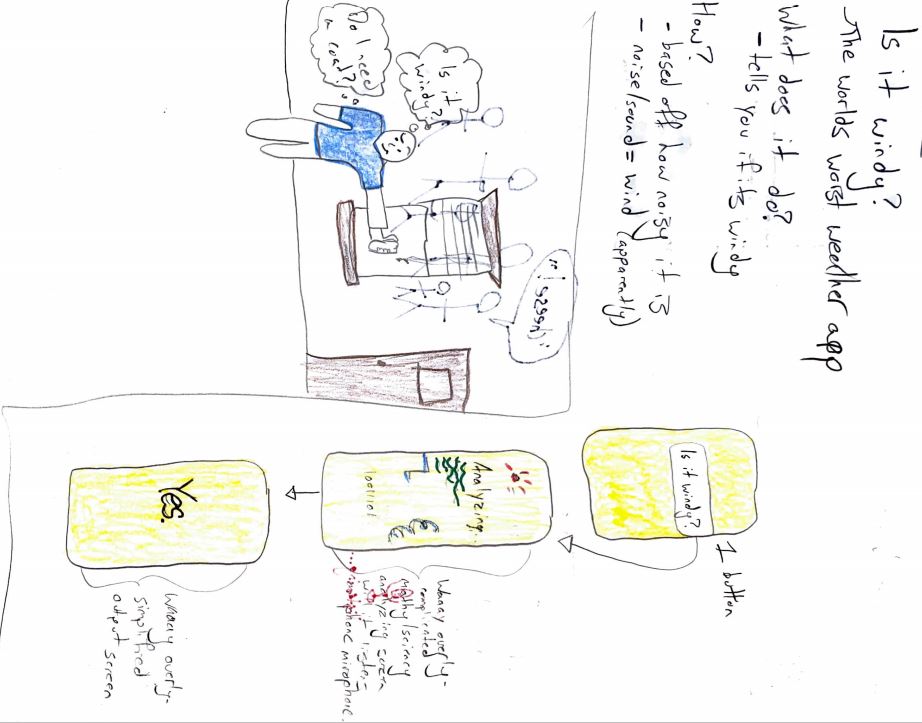 Is it windy?
The worlds worst weather app
What does it do?
- tells you if its windy
How?
- based off how noisy it is
- noise/sound = wind (apparently)
1 button
Is it windy?
Is it
windy?
Do I need
a coat?
Analyzing...
Waaay overly-
complicated
mathy/sciency
analyzing screen
iphone mirophone.
Yes.
Waaay overly-
simplified
output screen